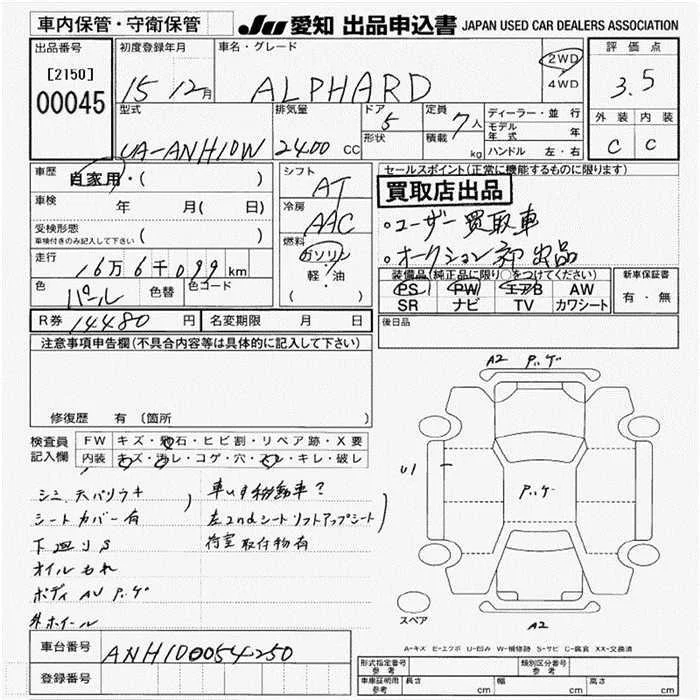 車内保管・守衛保管
JU 愛知 出品申込書 JAPAN USED CAR DEALERS ASSOCIATION
出品番号 [2150] 00045
初度登録年月 15 12月
車名・グレード ALPHARD
2WD
4WD
評価点 3.5
外装 内装
C C
型式 UA-ANH10W
排気量 2400 CC
ドア 5
形状
定員 7人
積載 kg
ディーラー・並行
モデル年式 年
ハンドル 左・右
車歴 自家用・( )
車検 年 月( 日)
受検形態
車検付きのみ記入して下さい ( )
走行 16万6千099km
色 パール 色替 色コード
シフト AT
冷房 AAC
燃料 ガソリン
軽・油
( )
セールスポイント(正常に機能するものに限ります)
買取店出品
。ユーザー買取車
。オークション初出品
装備品(純正品に限り○をつけてください)
PS PW エアB AW
SR ナビ TV カワシート
新車保証書
有・無
R券 14480円 名変期限 月 日
後日品
注意事項申告欄(不具合内容等は具体的に記入して下さい)
修復歴 有 〔箇所 〕
検査員記入欄
FW キズ・飛石・ヒビ割・リペア跡・X要
内装 キズ・汚レ・コゲ・穴・スレ・キレ・破レ
シミ 天バリウキ
シートカバー有
下廻りS
オイルもれ
ボディ AU P.ゲ
外ホイール
車いす移動車?
左2ndシートリフトアップシート
荷室取付物有
A2 P.ゲ
U1
P.ゲ
A2
スペア
A-キズ E-エクボ U-凹み W-補修跡 S-サビ C-腐食 XX-交換済
車台番号 ANH100054250
登録番号
形式指定番号 参考
類別区分番号 参考
車庫証明用 参考 長さ cm 幅 cm 高さ cm